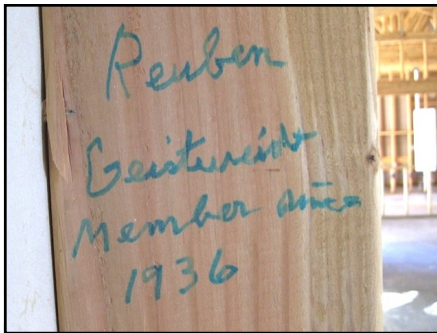 Reuben
Geistweidt
Member since
1936